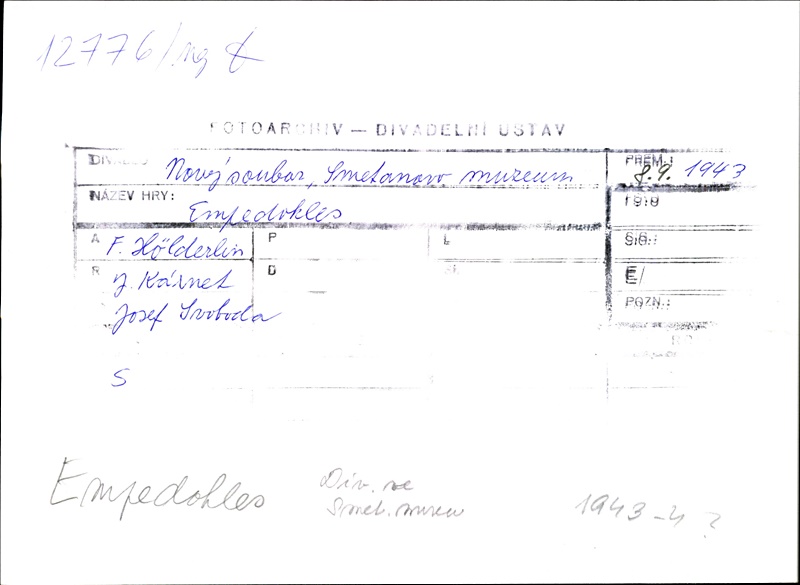 12776/neg
FOTOARCHIV — DIVADELNÍ ÚSTAV
DIVADLO Nový soubor, Smetanovo muzeum PREM.: 8.9. 1943
NÁZEV HRY: Empedokles
A F. Hölderlin P L
R J. Kárnet D
Josef Svoboda
S
E/
POZN.:
Empedokles Div. ve 1943-4?
Smet. muzeu